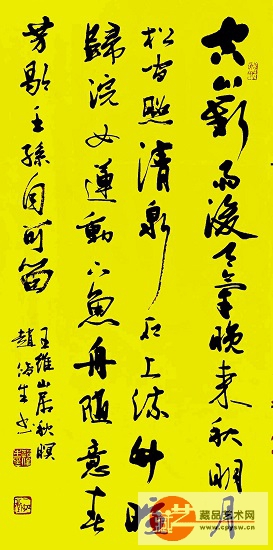 空山新雨後天氣晚來秋明月
松間照清泉石上流竹喧
歸浣女蓮動下魚舟隨意春
芳歇王孫自可留
王維山居秋暝
趙生书
艺
藏品艺术网
www.cpysw.cn